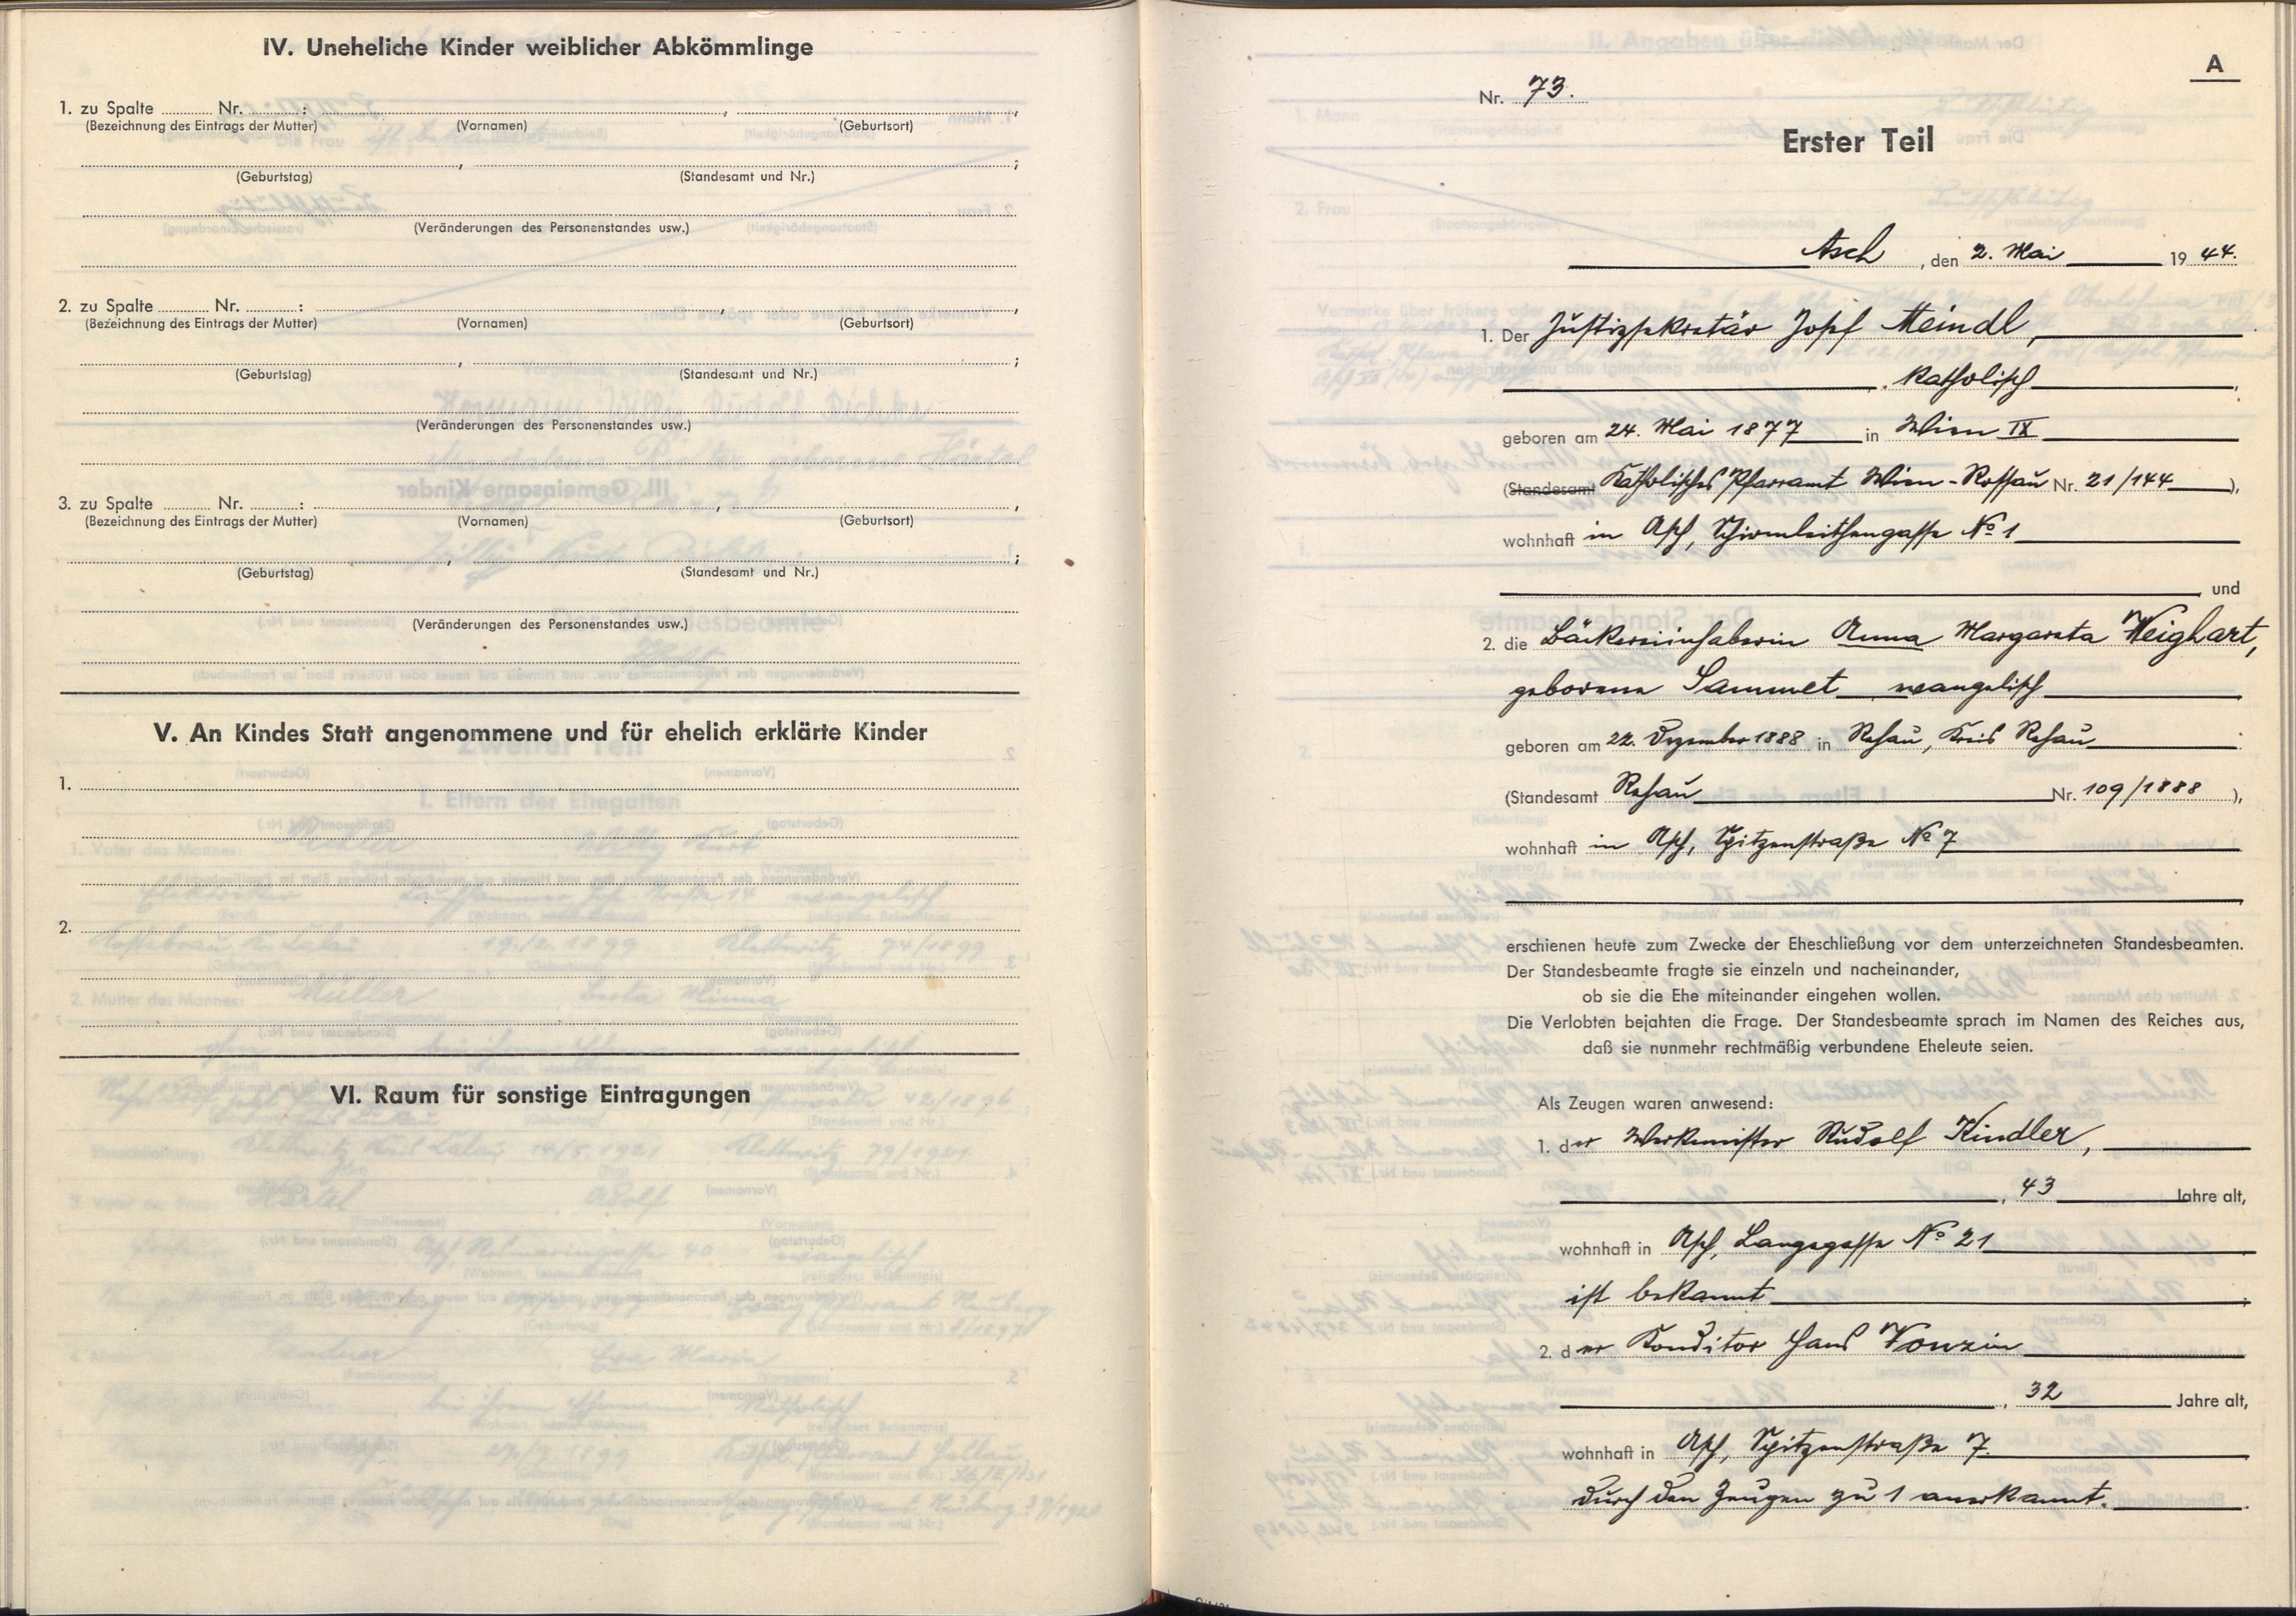 IV. Uneheliche Kinder weiblicher Abkömmlinge
1. zu Spalte ......... Nr. ......... : , ,
(Bezeichnung des Eintrags der Mutter) (Vornamen) (Geburtsort)
, ;
(Geburtstag) (Standesamt und Nr.)
(Veränderungen des Personenstandes usw.)
2. zu Spalte ......... Nr. ......... : , ,
(Bezeichnung des Eintrags der Mutter) (Vornamen) (Geburtsort)
, ;
(Geburtstag) (Standesamt und Nr.)
(Veränderungen des Personenstandes usw.)
3. zu Spalte ......... Nr. ......... : , ,
(Bezeichnung des Eintrags der Mutter) (Vornamen) (Geburtsort)
, ;
(Geburtstag) (Standesamt und Nr.)
(Veränderungen des Personenstandes usw.)
V. An Kindes Statt angenommene und für ehelich erklärte Kinder
1.
2.
VI. Raum für sonstige Eintragungen
A
Nr. 73.
Erster Teil
Asch, den 2. Mai 1944.
1. Der Justizsekretär Josef Meindl,
, katholisch,
geboren am 24. Mai 1877 in Wien IX
(Standesamt Katholisches Pfarramt Wien-Rossau Nr. 21/144),
wohnhaft in Asch, Schirmleithengasse No 1
und
2. die Bäckereiinhaberin Anna Margareta Weighart,
geborene Sammet evangelisch
geboren am 22. Dezember 1888 in Rehau, Kreis Rehau
(Standesamt Rehau Nr. 109/1888),
wohnhaft in Asch, Spitzenstraße No 7
erschienen heute zum Zwecke der Eheschließung vor dem unterzeichneten Standesbeamten.
Der Standesbeamte fragte sie einzeln und nacheinander,
ob sie die Ehe miteinander eingehen wollen.
Die Verlobten bejahten die Frage. Der Standesbeamte sprach im Namen des Reiches aus,
daß sie nunmehr rechtmäßig verbundene Eheleute seien.
Als Zeugen waren anwesend:
1. der Werkmeister Rudolf Kindler,
, 43 Jahre alt,
wohnhaft in Asch, Langegasse No 21
ist bekannt;
2. der Konditor Hans Wonzin
, 32 Jahre alt,
wohnhaft in Asch, Spitzenstraße 7.
durch den Zeugen zu 1 anerkannt.